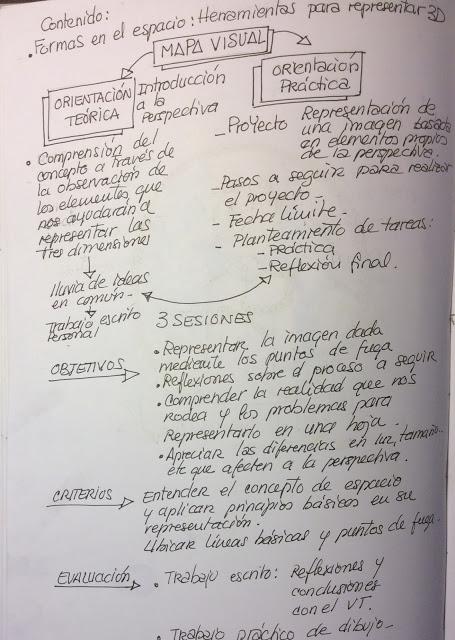 Contenido:
• Formas en el espacio: Herramientas para representar 3D
MAPA VISUAL
ORIENTACIÓN
TEÓRICA
Introducción
a la
Perspectiva
• Comprensión del
concepto a través de
la observación de
los elementos que
nos ayudarán a
representar las
tres dimensiones
lluvia de ideas
en común-
Trabajo escrito
Personal
Orientación
Práctica
- Proyecto Representación de
una imagen basada
en elementos propios
de la perspectiva.
- Pasos a seguir para realizar
el proyecto-
- Fecha límite-
- Planteamiento de tareas:
- Práctica
- Reflexión final.
3 SESIONES
OBJETIVOS
• Representar la imagen dada
mediante los puntos de fuga
• Reflexiones sobre el proceso a seguir
• Comprender la realidad que nos
rodea y los problemas para
Representarlo en una hoja.
• Apreciar las diferencias en luz, tamaño..
etc que afecten a la perspectiva.
CRITERIOS
Entender el concepto de espacio
y aplicar principios básicos en su
representación.
Ubicar líneas básicas y puntos de fuga.
EVALUACIÓN
• Trabajo escrito: Reflexiones y
conclusiones
con el VT.
• Trabajo práctico de dibujo-